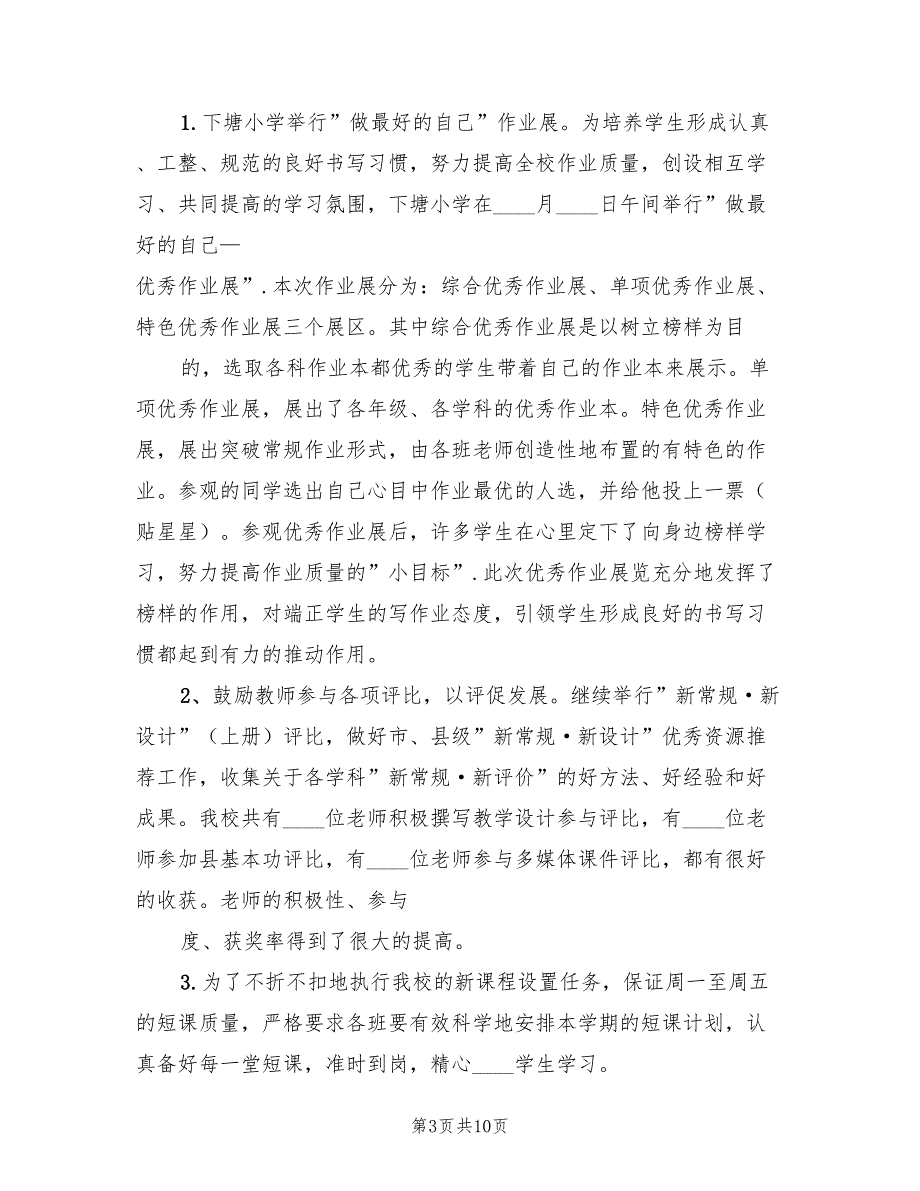 1.下塘小学举行”做最好的自己”作业展。为培养学生形成认真
、工整、规范的良好书写习惯，努力提高全校作业质量，创设相互学
习、共同提高的学习氛围，下塘小学在____月____日午间举行”做最
好的自己—
优秀作业展”.本次作业展分为：综合优秀作业展、单项优秀作业展、
特色优秀作业展三个展区。其中综合优秀作业展是以树立榜样为目
的，选取各科作业本都优秀的学生带着自己的作业本来展示。单
项优秀作业展，展出了各年级、各学科的优秀作业本。特色优秀作业
展，展出突破常规作业形式，由各班老师创造性地布置的有特色的作
业。参观的同学选出自己心目中作业最优的人选，并给他投上一票（
贴星星）。参观优秀作业展后，许多学生在心里定下了向身边榜样学
习，努力提高作业质量的”小目标”.此次优秀作业展览充分地发挥了
榜样的作用，对端正学生的写作业态度，引领学生形成良好的书写习
惯都起到有力的推动作用。
2、鼓励教师参与各项评比，以评促发展。继续举行”新常规·新
设计”（上册）评比，做好市、县级”新常规·新设计”优秀资源推
荐工作，收集关于各学科”新常规·新评价”的好方法、好经验和好
成果。我校共有____位老师积极撰写教学设计参与评比，有____位老
师参加县基本功评比，有____位老师参与多媒体课件评比，都有很好
的收获。老师的积极性、参与
度、获奖率得到了很大的提高。
3.为了不折不扣地执行我校的新课程设置任务，保证周一至周五
的短课质量，严格要求各班要有效科学地安排本学期的短课计划，认
真备好每一堂短课，准时到岗，精心____学生学习。
第3页共10页